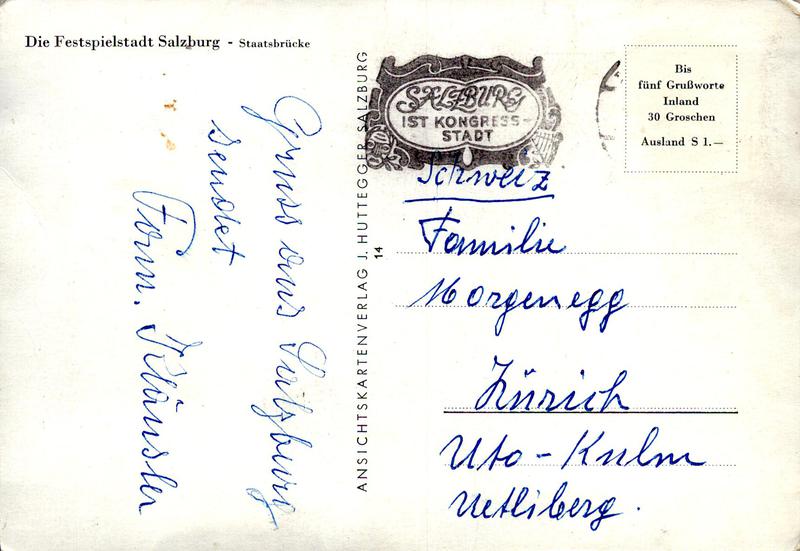 Die Festspielstadt Salzburg - Staatsbrücke
Gruss aus Salzburg
sendet
Fam.
ANSICHTSKARTENVERLAG J. HUTTEGGER, SALZBURG
14
SALZBURG
IST KONGRESS-
STADT
Bis
fünf Grußworte
Inland
30 Groschen
Ausland S 1.—
Schweiz
Familie
Morgenegg
Zürich
Uto-Kulm
Uetliberg.